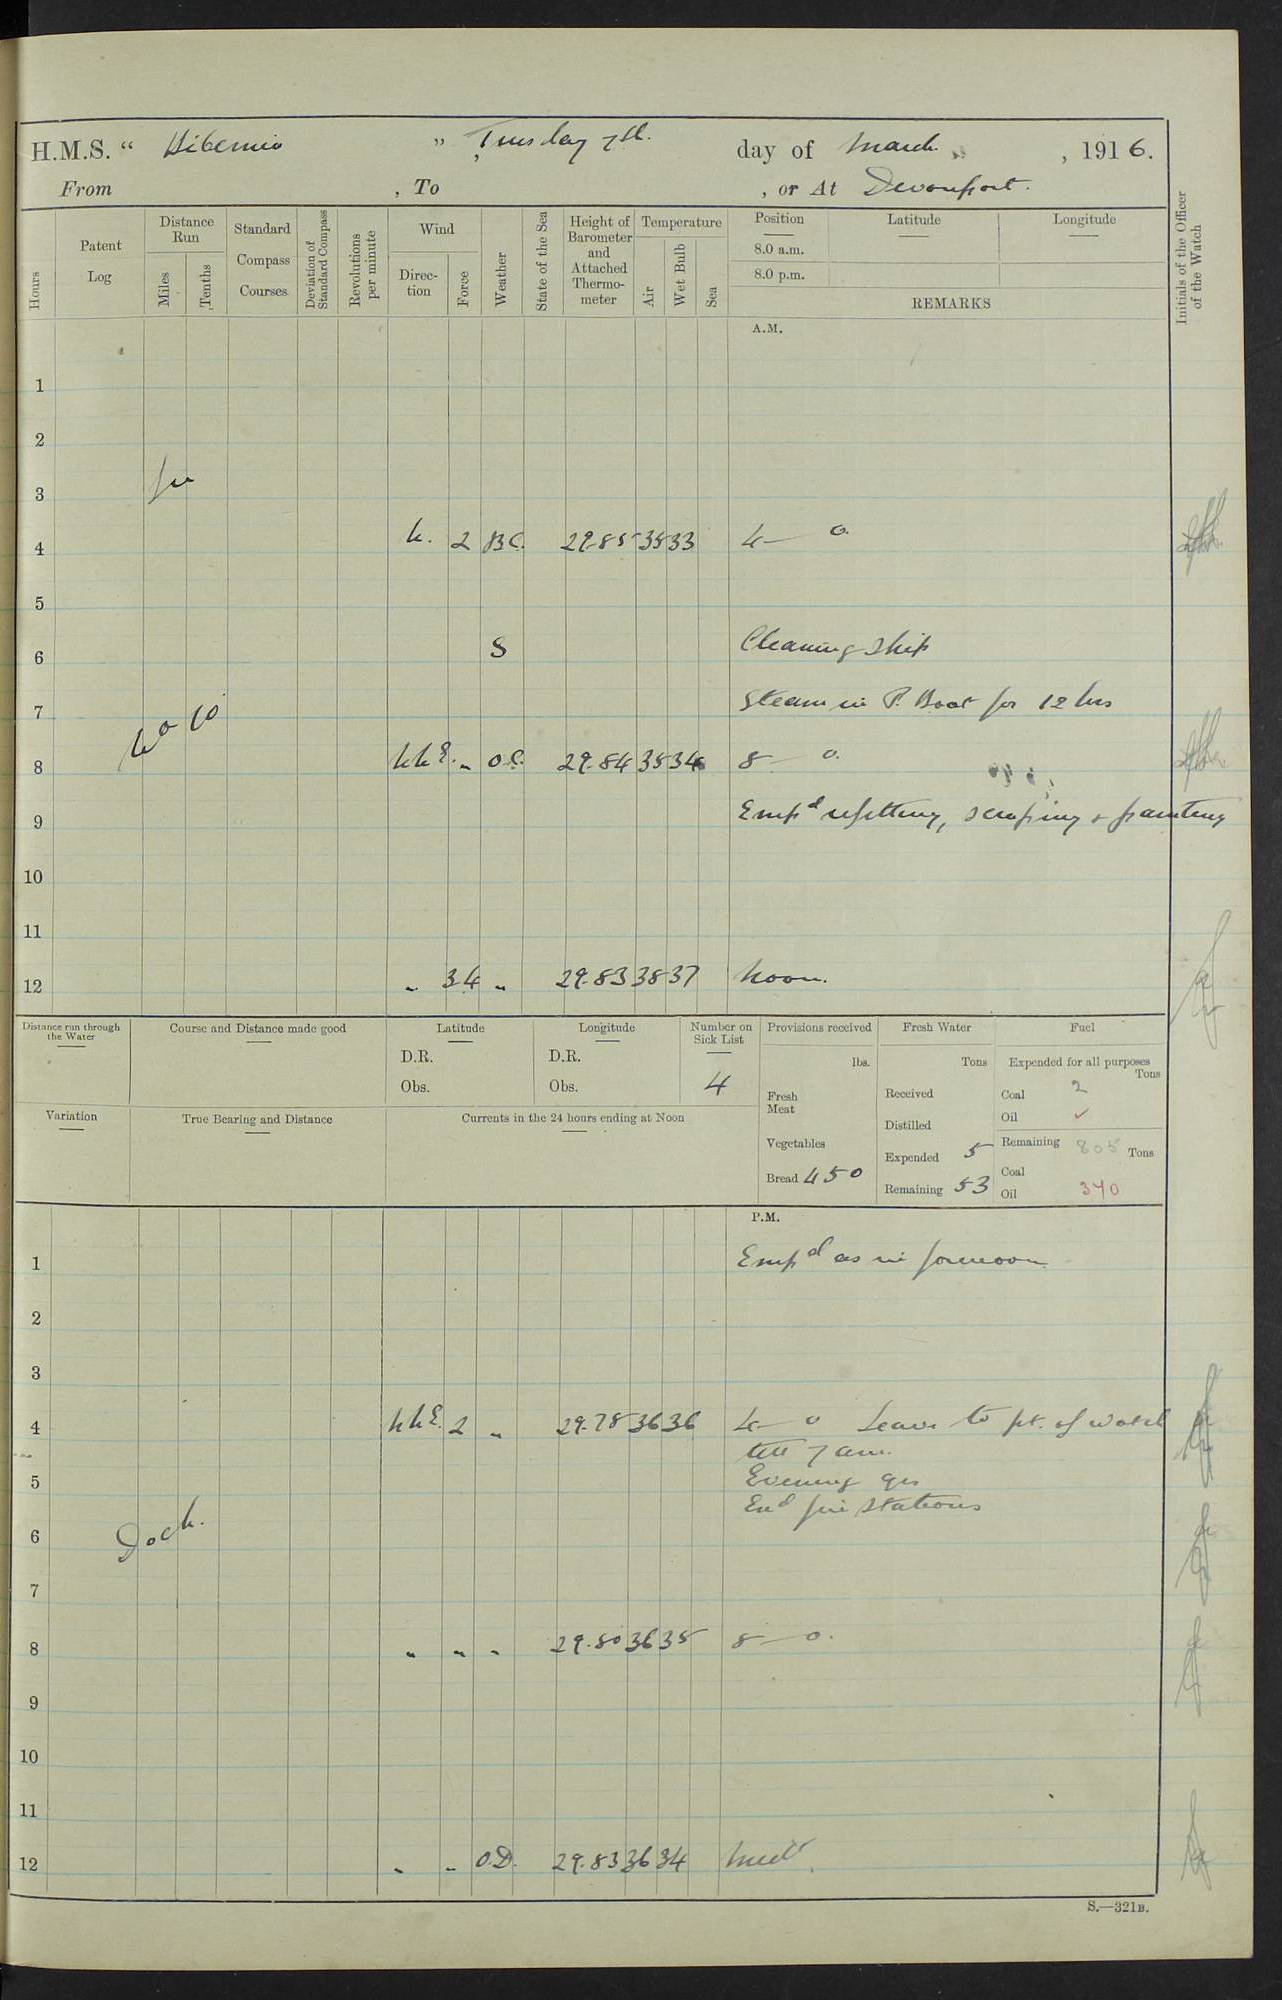 H.M.S. “ Hibernia ” Tuesday 7th. day of March , 1916.
From , To , or At Devonport.
Hours
Patent Log
Distance Run
Miles
Tenths
Standard Compass Courses
Deviation of Standard Compass
Revolutions per minute
Wind
Direction
Force
Weather
State of the Sea
Height of Barometer and Attached Thermometer
Temperature
Air
Wet Bulb
Sea
Position Latitude Longitude
8.0 a.m.
8.0 p.m.
REMARKS
Initials of the Officer of the Watch
A.M.
1
2
3 In
4 N. 2 BC. 29.85 35 33 4— 0.
5
6 S Cleaning ship
7 Steam in P. Boat for 12 hrs
No 10
8 NNE. „ O.C. 29.84 35 34 8— 0.
9 Empd refitting, scraping & painting
10
11
12 „ 3.4 „ 29.83 38 37 Noon.
Distance run through the Water
Course and Distance made good
Latitude
D.R.
Obs.
Longitude
D.R.
Obs.
Number on Sick List
4
Variation
True Bearing and Distance
Currents in the 24 hours ending at Noon
Provisions received
lbs.
Fresh Meat
Vegetables
Bread 450
Fresh Water
Tons
Received
Distilled
Expended 5
Remaining 53
Fuel
Expended for all purposes
Tons
Coal 2
Oil ✓
Remaining 805 Tons
Coal
Oil 340
P.M.
1 Empd as in forenoon
2
3
4 NNE. 2 „ 29.78 36 36 4— 0 Leave to pt. of watch
till 7 am.
5 Evening qrs
Exd fire stations
6 Dock.
7
8 „ „ „ 29.80 36 35 8— 0.
9
10
11
12 „ „ O.D. 29.83 36 34 Midt
S.—321B.